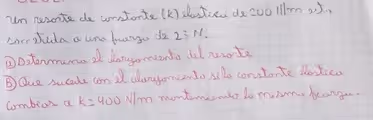 Un resorte de constante (k) elastica de 200 N/m est
sometida a una fuerza de 25 N.
Ⓐ Determina el alargamiento del resorte
Ⓑ Que sucede con el alargamiento si la constante elastica
cambia a k = 400 N/m manteniendo la misma fuerza.